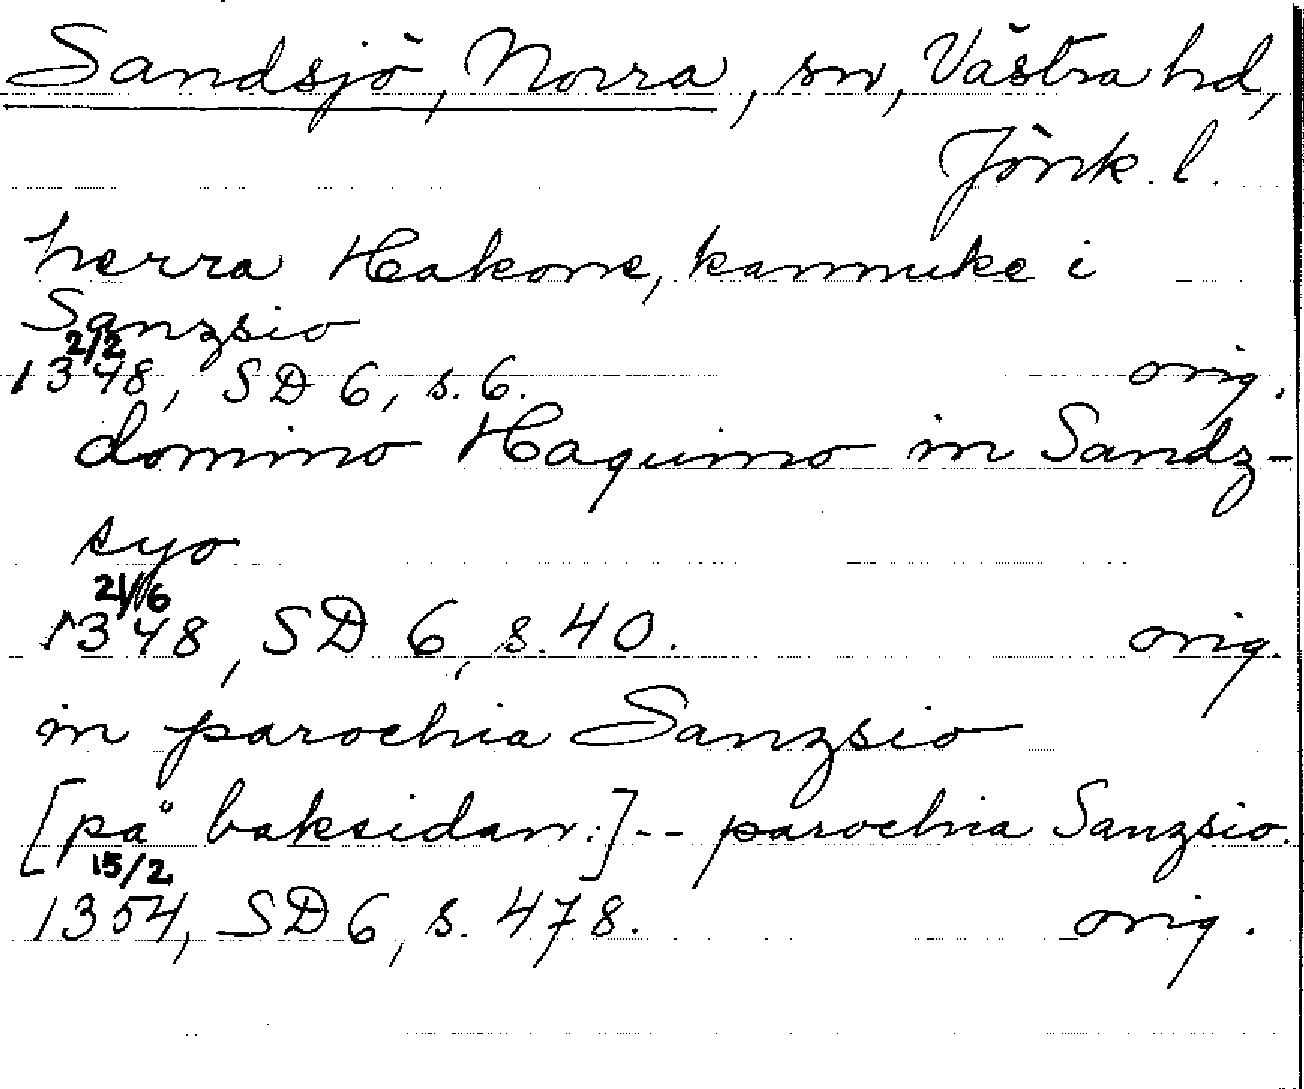 Sandsjö, Norra, sn, Västra hd,
Jönk. l.
herra Hakone, kannuke i
Sanzsio
2/2
1348, SD 6, s. 6. orig.
domino Haquino in Sandz-
syo
21/6
1348, SD 6, s. 40. orig.
in parochia Sanzsio
[på baksidan:]-- parochia Sanzsio.
15/2
1354, SD 6, s. 478. orig.